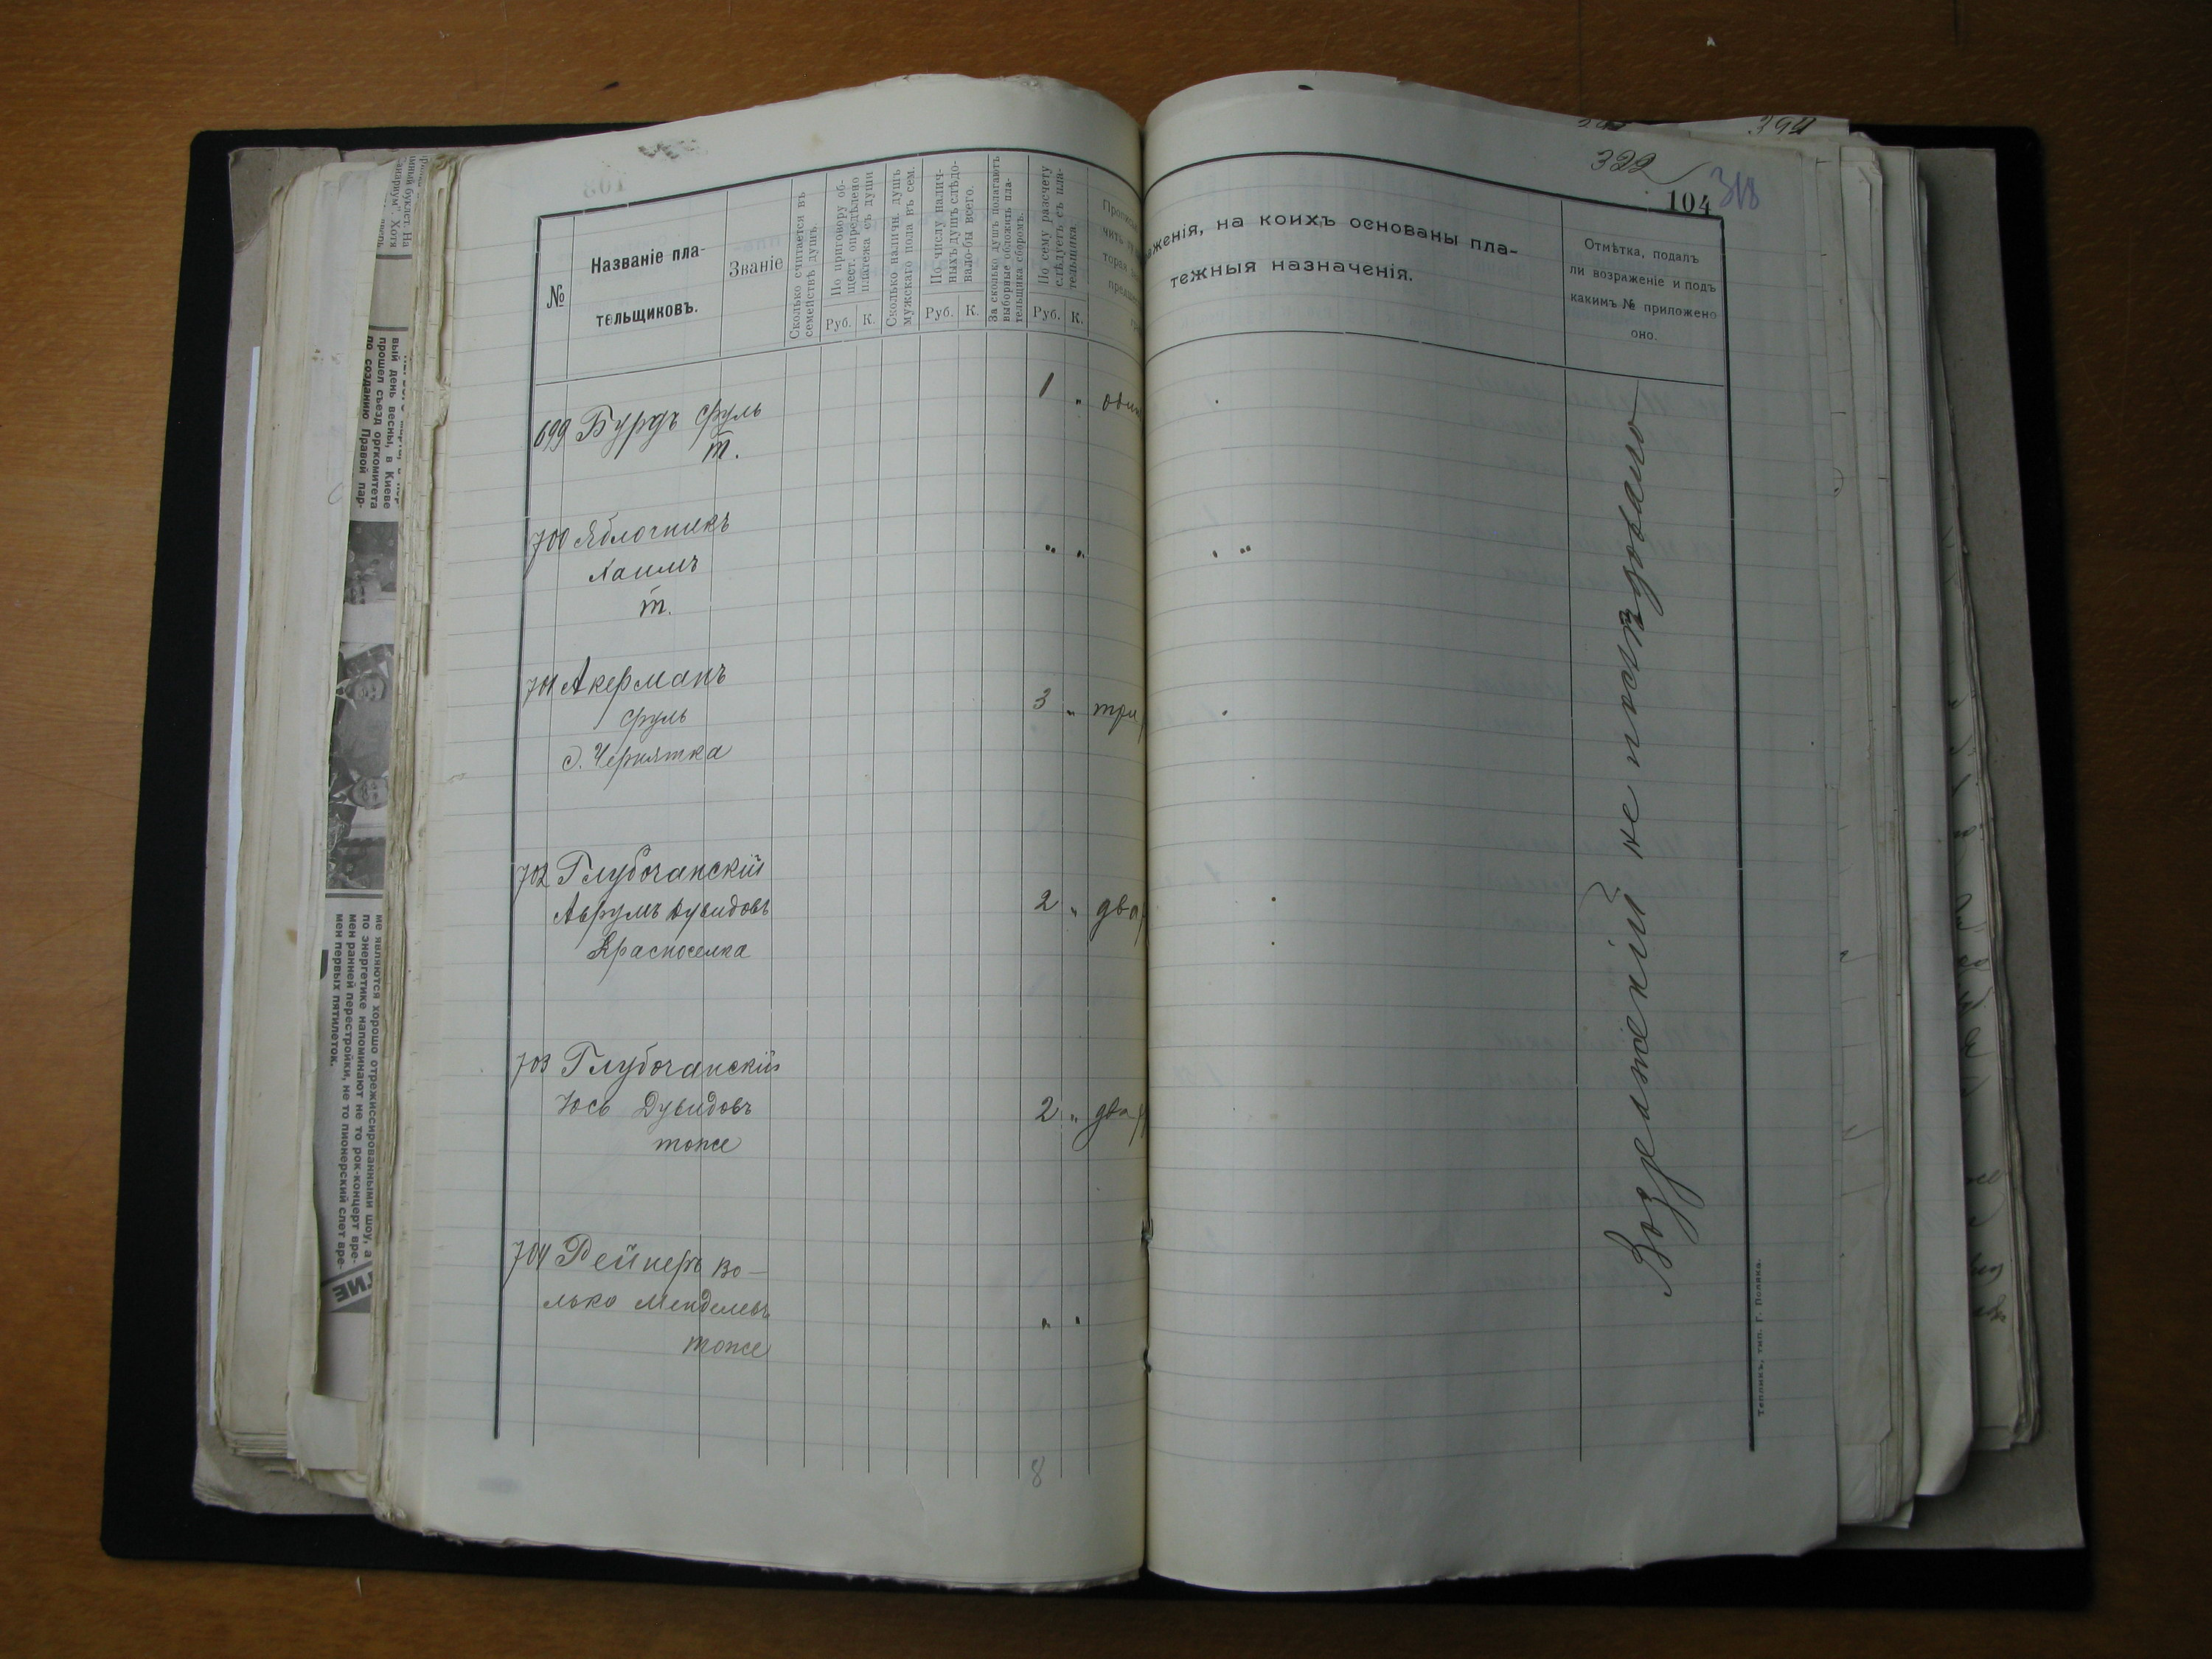 №
Названіе пла-
тельщиковъ.
Званіе
Сколько считается въ
семействѣ душъ.
По приговору об-
щест. опредѣлено
платежа съ души
Руб. К.
Сколько наличн. душъ
мужскаго пола въ сем.
По числу налич-
ныхъ душъ слѣдо-
вало-бы всего.
Руб. К.
За сколько душъ полагаютъ
выборные обложить пла-
тельщика сборомъ.
По сему разсчету
слѣдуетъ съ пла-
тельщика.
Руб. К.
699 Бурдъ Сруль 1 „ одинъ
т.
700 Яблочникъ „ „
Хаимъ
т.
701 Акерманъ
Сруль 3 „ три
д. Чернятка
702 Глубочанскій
Аврумъ Дувидовъ 2 „ два
Красноселка
703 Глубочанскій
Юсь Дувидовъ 2 „ два
тоже
704 Рейнеръ Во-
лько Менделевъ „ „
тоже
8
394
322
104 318
женія, на коихъ основаны пла-
тежныя назначенія.
Отмѣтка, подалъ
ли возраженіе и подъ
какимъ № приложено
оно.
Возраженій не послѣдовало
Тепликъ, тип. Г. Полика.
вый день весны, в Киеве
прошел съезд оргкомитета
по созданию Правой пар-
ме являются хорошо отрежиссированными шоу, а
по энергетике напоминают не то рок-концерт вре-
мен ранней перестройки, не то пионерский слет вре-
мен первых пятилеток.